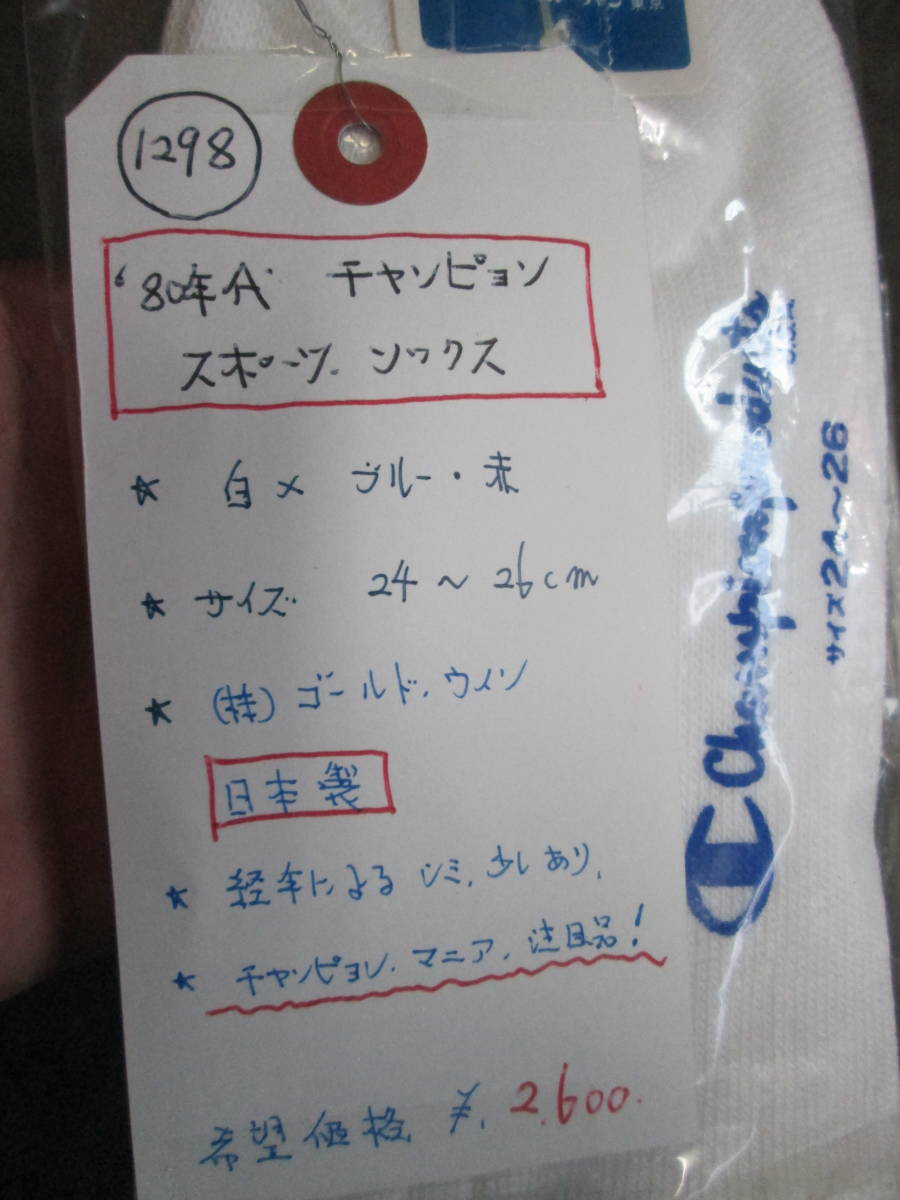 1298
'80年代 チャンピョン
スポーツ. ソックス
★ 白 × ブルー・赤
★ サイズ. 24 ~ 26cm
★ (株) ゴールド. ウイン
日本製
★ 経年による シミ. 少しあり.
★ チャンピョン. マニア. 注目品!
希望価格 ¥. 2.600.
東京
Champion
サイズ24~26